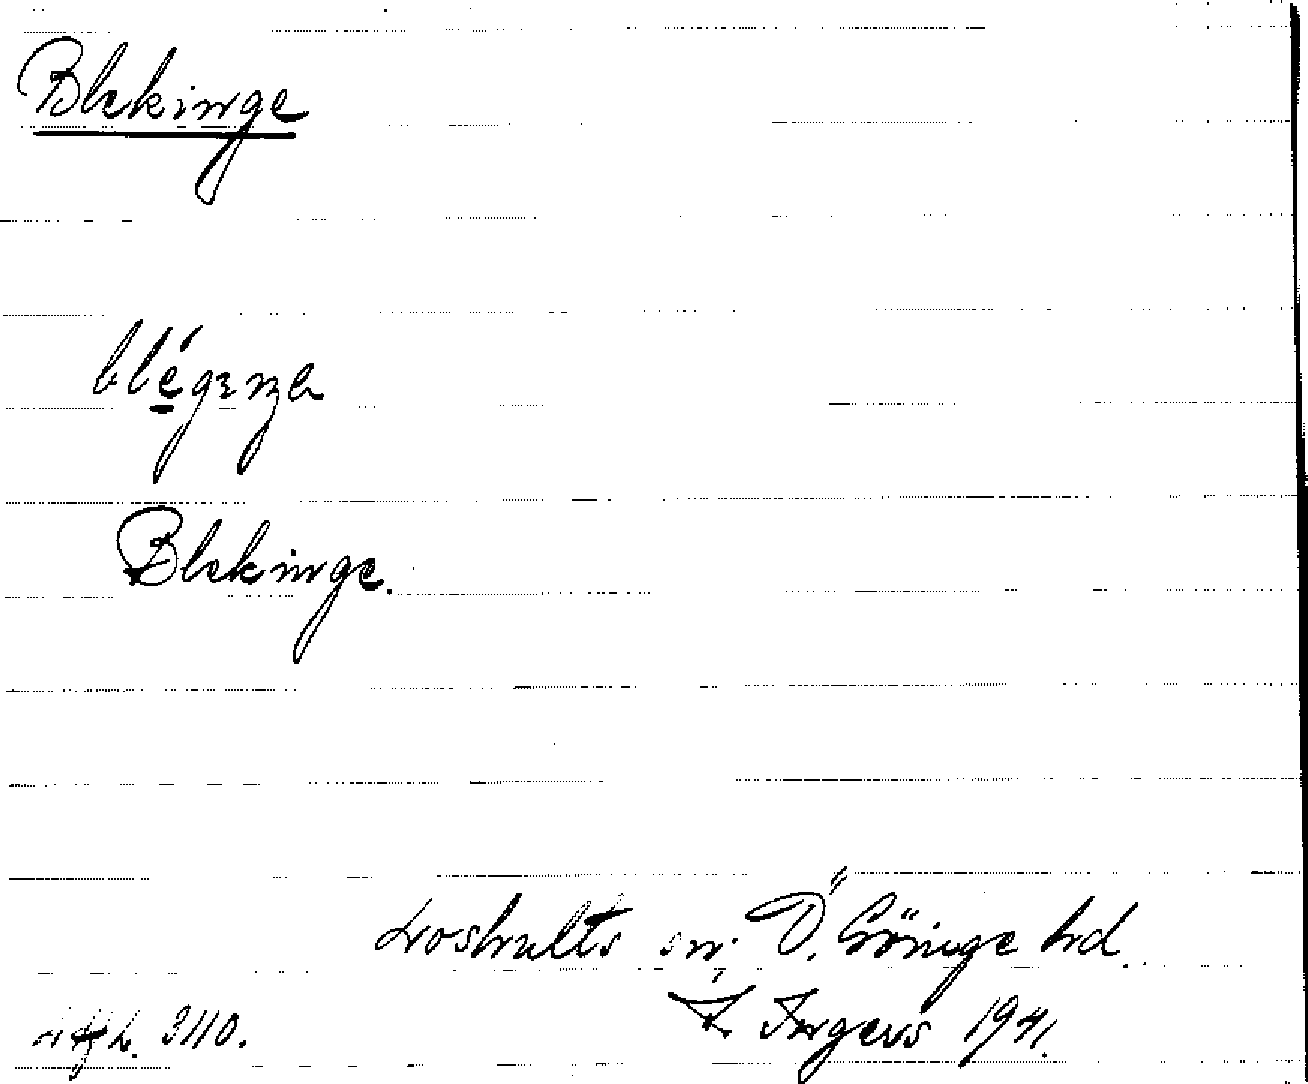 Blekinge
Blekinge.
Loshults sn; Ö. Göinge hd.
I. Ingers 1941.
3110.